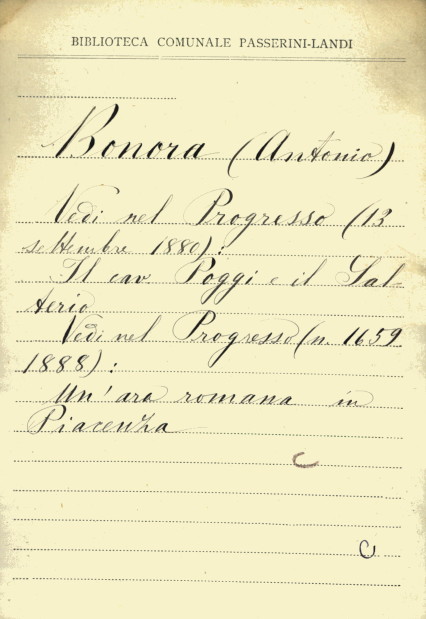 BIBLIOTECA COMUNALE PASSERINI-LANDI
Bonora (Antonio)
Vedi nel Progresso (13
settembre 1880):
Il cav Poggi e il Sal-
terio
Vedi nel Progresso (n. 1659
1888):
Un'ara romana in
Piacenza
C
C